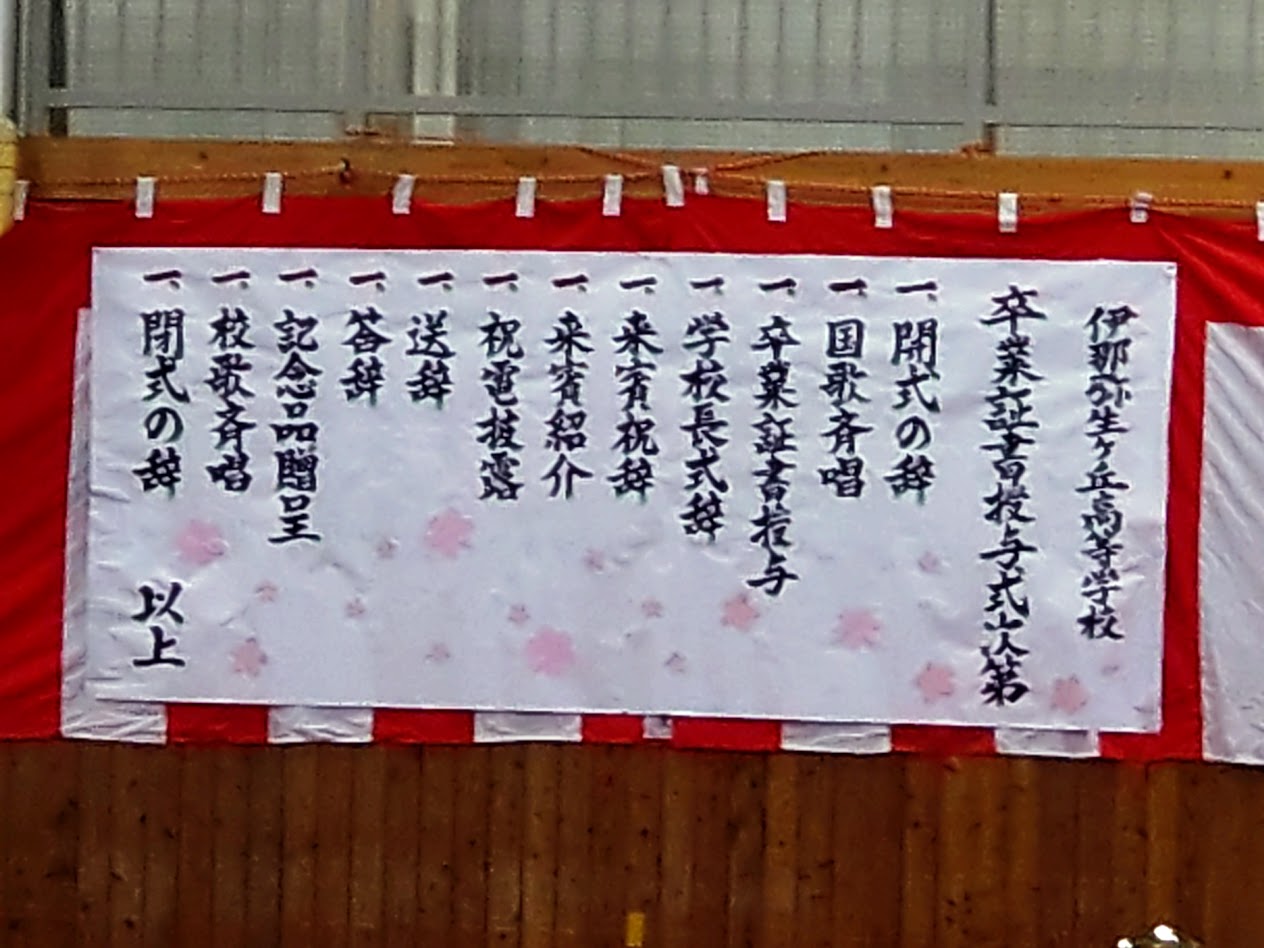 伊那弥生ヶ丘高等学校
卒業証書授与式次第
一、開式の辞
一、国歌斉唱
一、卒業証書授与
一、学校長式辞
一、来賓祝辞
一、来賓紹介
一、祝電披露
一、送辞
一、答辞
一、記念品贈呈
一、校歌斉唱
一、閉式の辞
以上